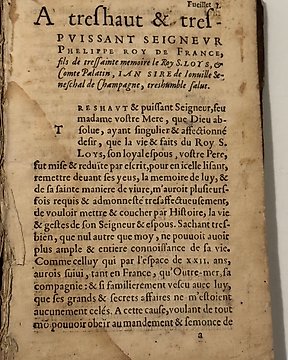 Fueillet 1.
A treshaut & tres-
PVISSANT SEIGNEVR
PHELIPPE ROY DE FRANCE,
fils de tressainte memoire le Roy S. LOYS, &
Comte Palatin, IAN SIRE de Ionuille Se-
neschal de Champagne, treshumble salut.
TRESHAVT & puissant Seigneur, feu
madame vostre Mere, que Dieu ab-
solue, ayant singulier & affectionné
desir, que la vie & faits du Roy S.
LOYS, son loyal espous, vostre Pere,
fut mise & reduite par escrit, pour en icelle lisant,
remettre deuant ses yeus, la memoire de luy, &
de sa sainte maniere de viure, m'auroit plusieurs-
fois requis & admonnesté tresaffectueusement,
de vouloir mettre & coucher par Histoire, la vie
& gestes de son Seigneur & espous. Sachant tres-
bien, que nul autre que moy, ne pouuoit auoit
plus ample & entiere connoissance de sa vie.
Comme celluy qui par l'espace de XXII. ans,
aurois suiui, tant en France, qu'Outre-mer, sa
compagnie: & si familierement vescu auec luy,
que ses grands & secrets affaires ne m'estoient
aucunement celés. A cette cause, voulant de tout
mõ pouuoir obeir au mandement & semonce de
a